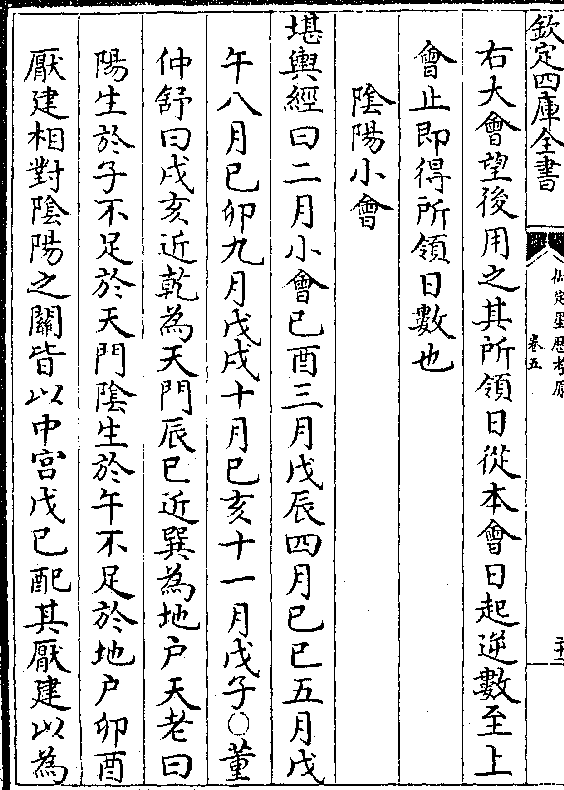 欽定四庫全書
欽定星歷考原
卷五
右大會望後用之其所領日從本會日起逆數至上
會止即得所領日數也
陰陽小會
堪輿經曰二月小會己酉三月戊辰四月己巳五月戊
午八月己卯九月戊戌十月己亥十一月戊子○董
仲舒曰戌亥近乾為天門辰巳近巽為地户天老曰
陽生於子不足於天門陰生於午不足於地户卯酉
厭建相對陰陽之關皆以中宮戊己配其厭建以為